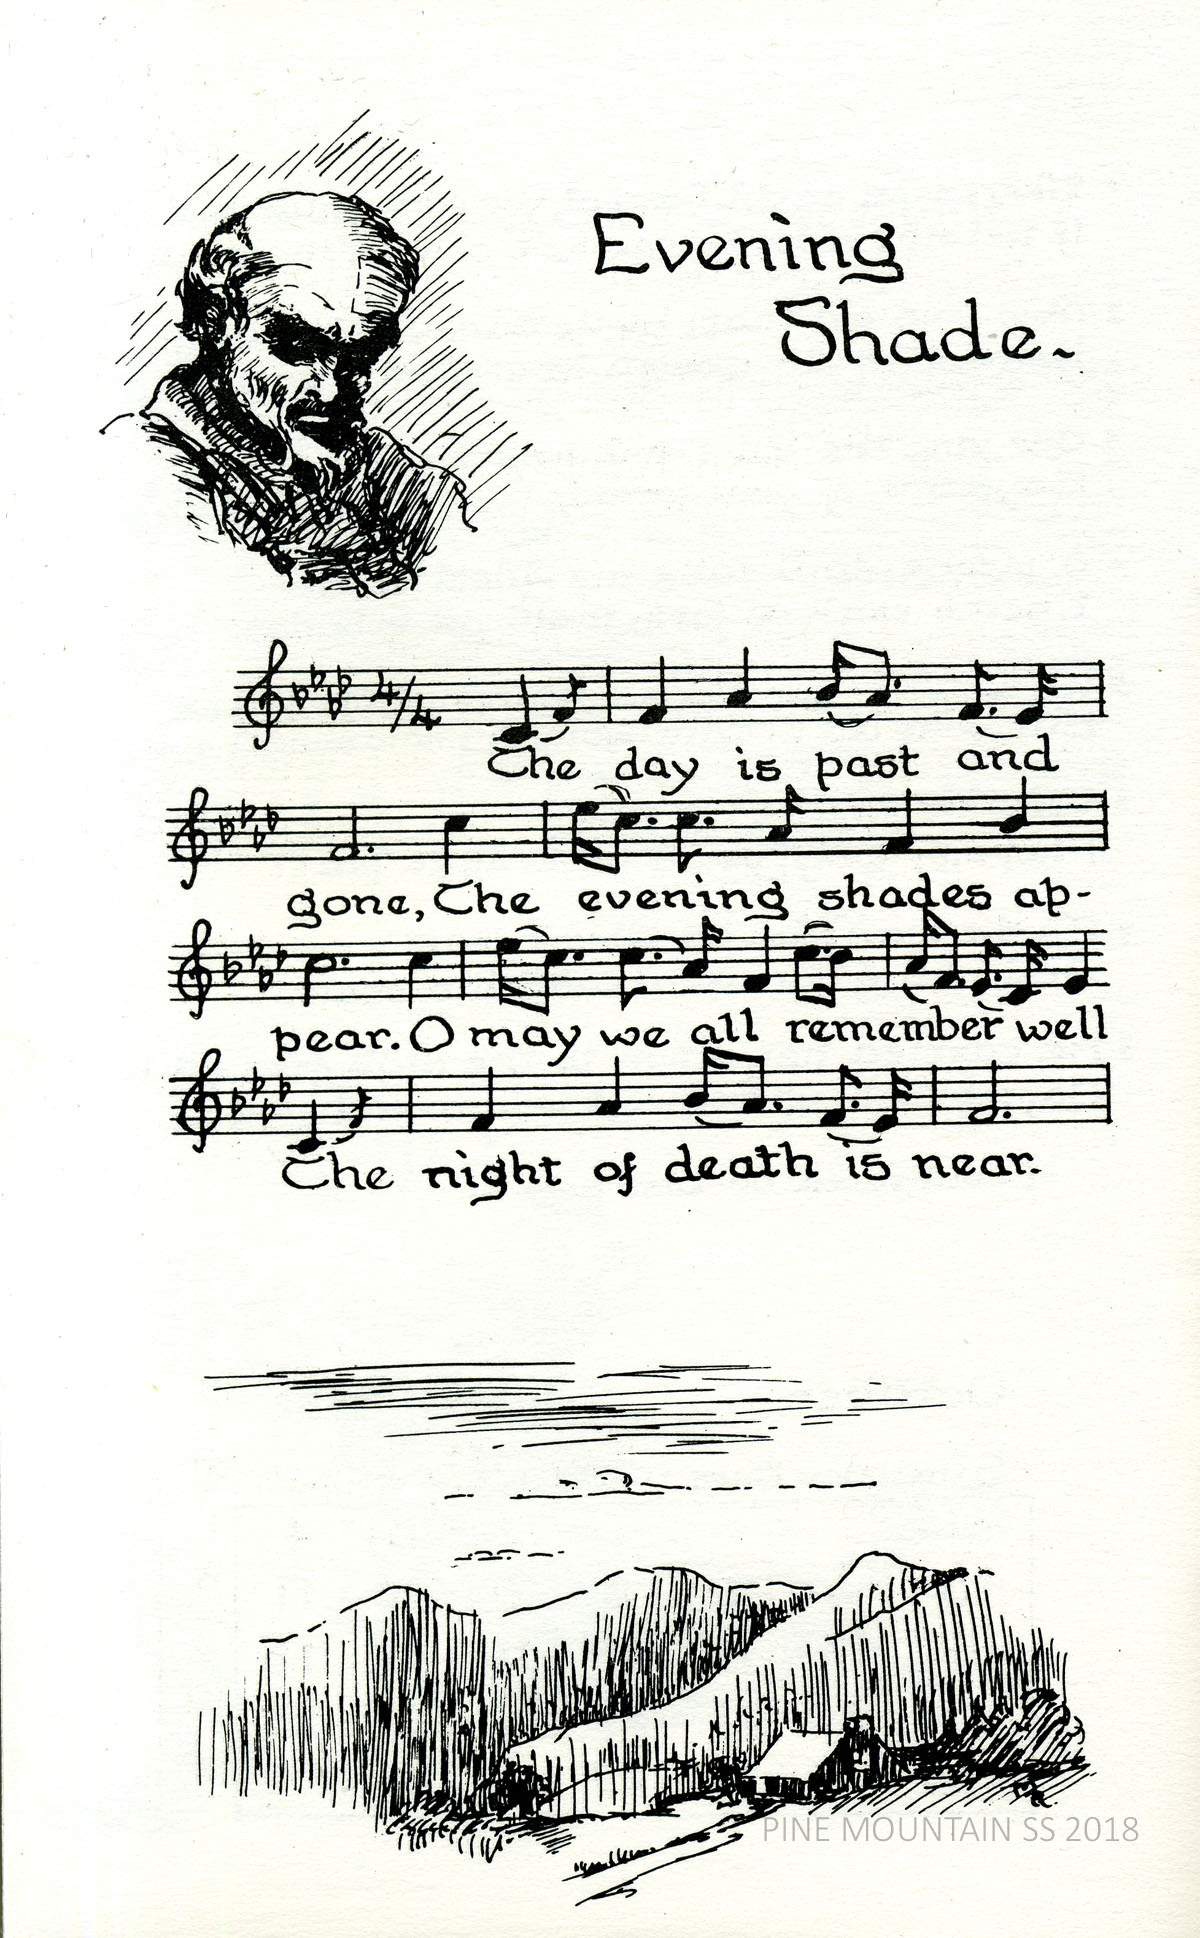 Evening
Shade.~
4/4
The day is past and
gone, The evening shades ap-
pear. O may we all remember well
The night of death is near.
PINE MOUNTAIN SS 2018